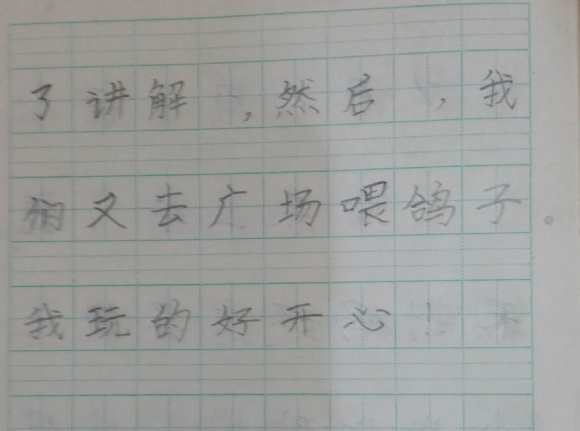 了讲解，然后，我
们又去广场喂鸽子。
我玩的好开心！